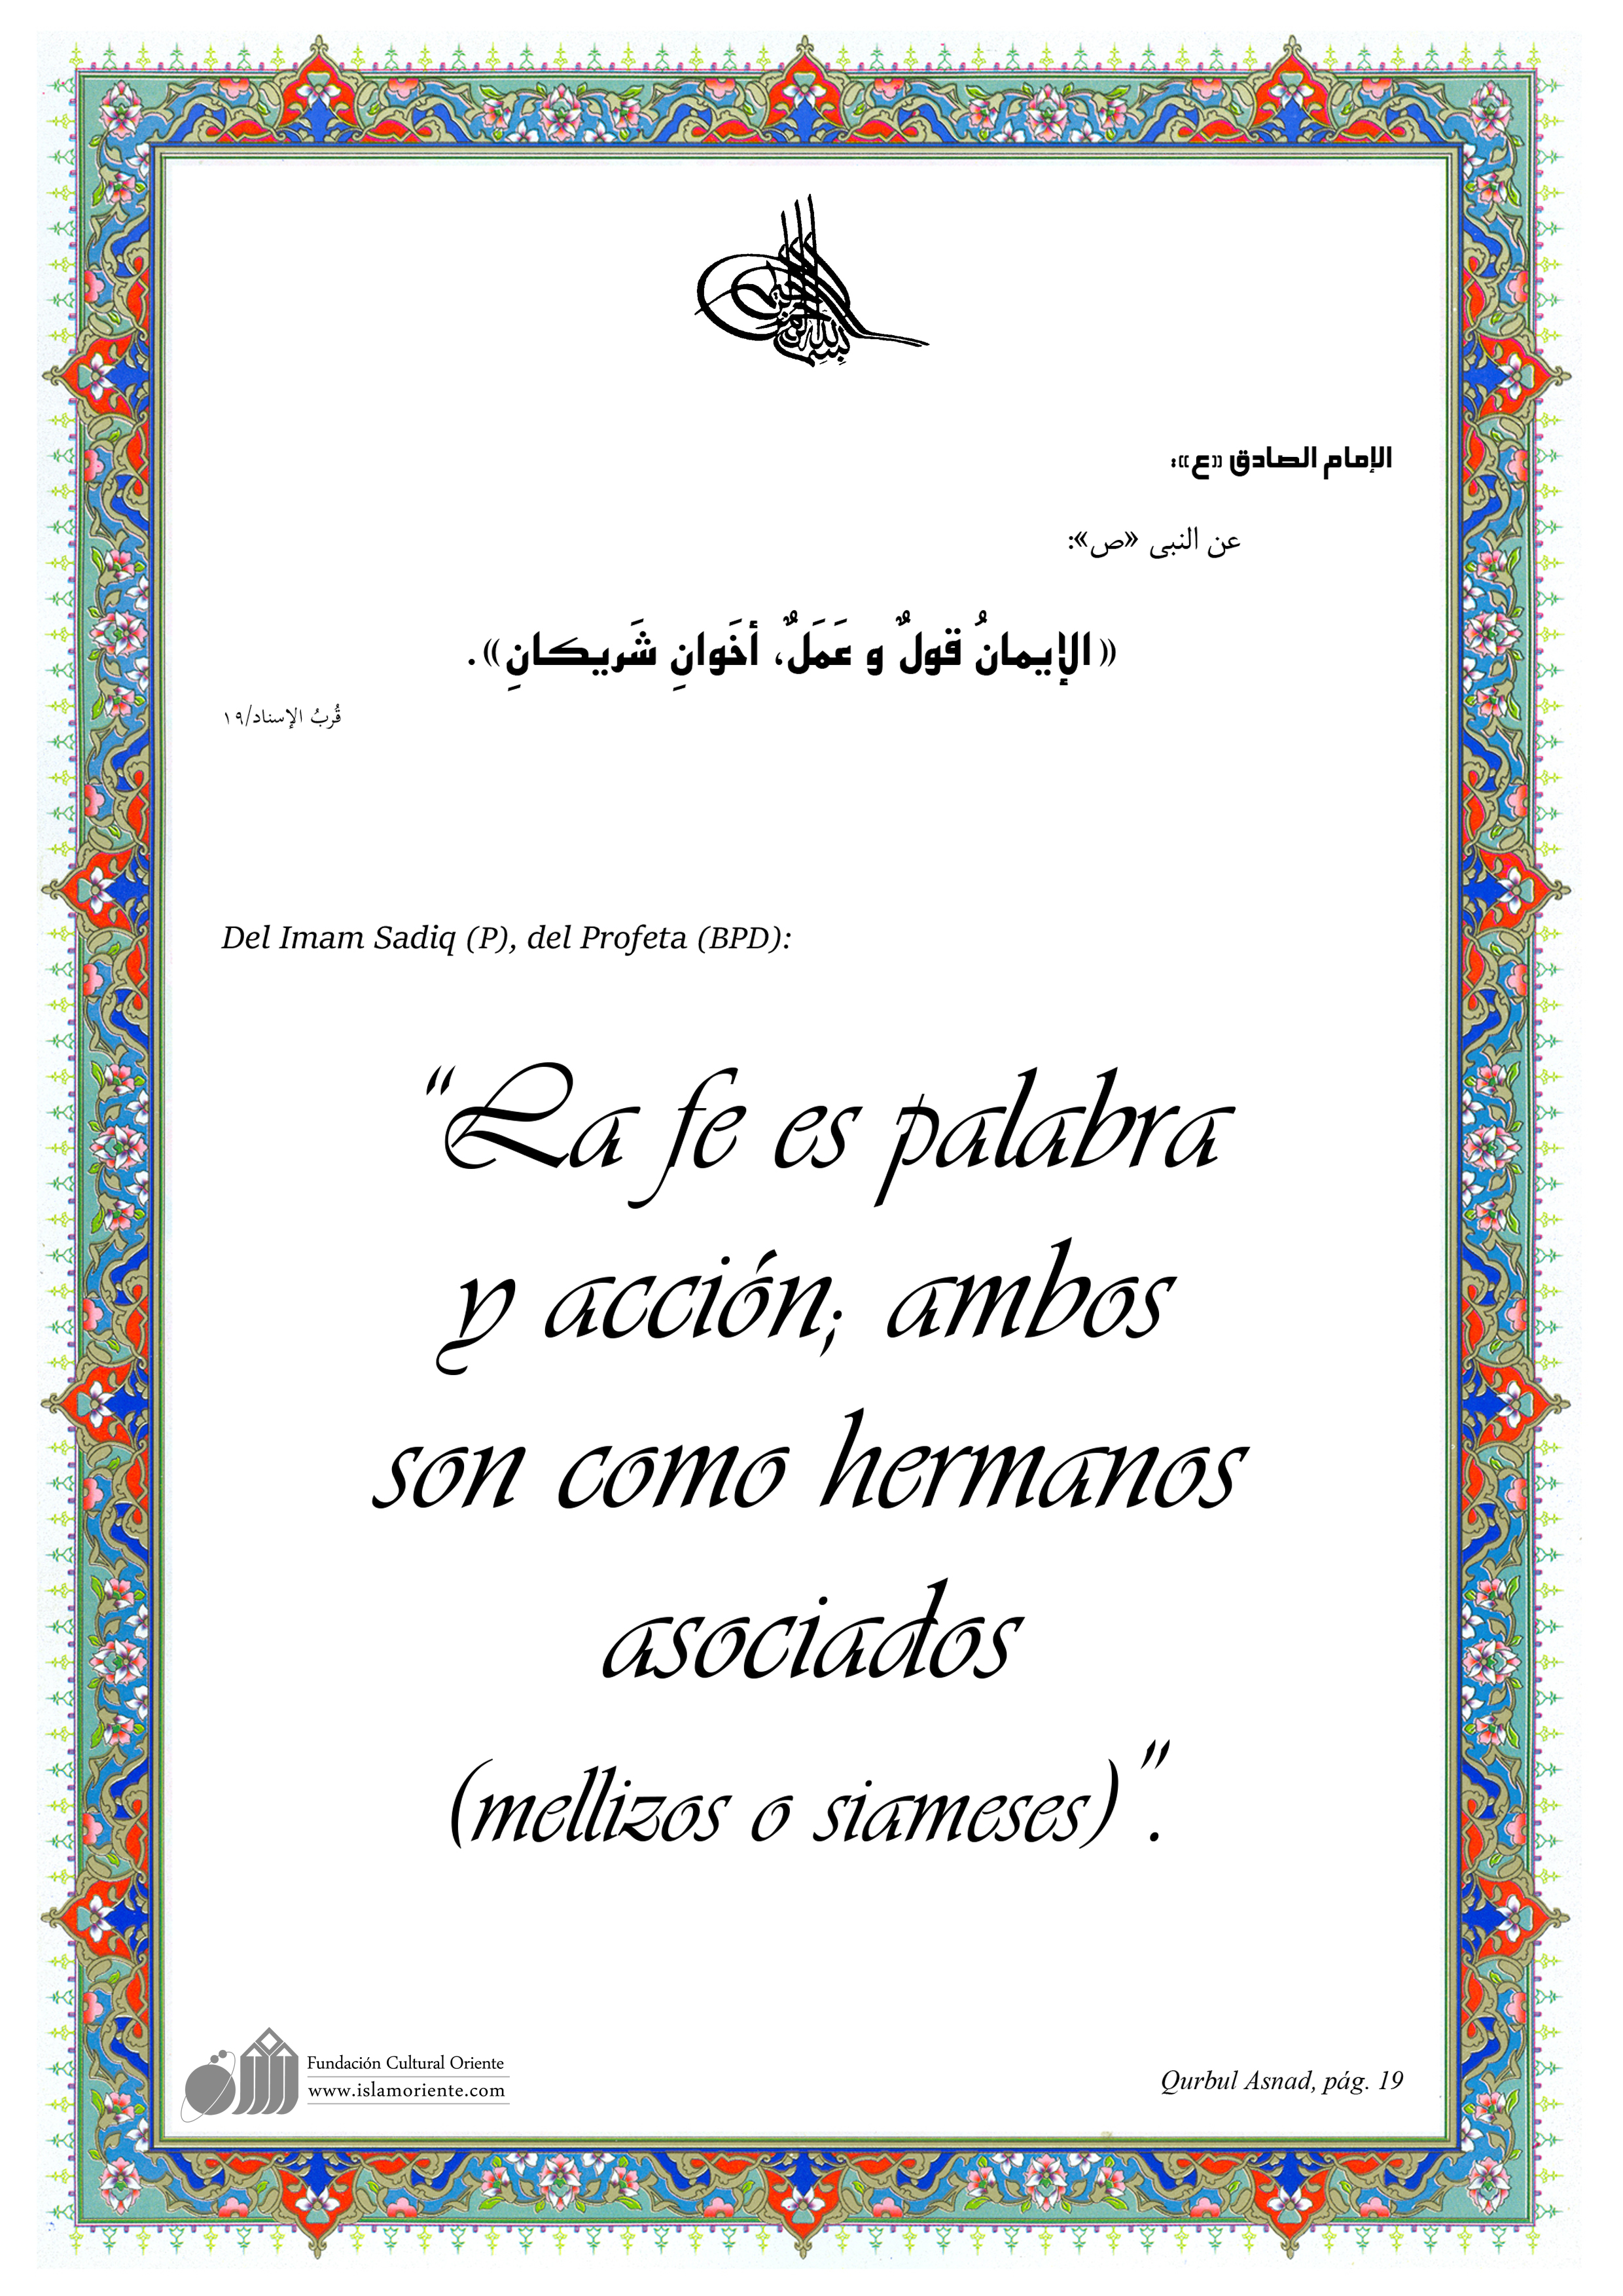 الإمام الصادق «ع»:
عن النبی «ص»:
«الإيمانُ قولٌ و عَمَلٌ، أخَوانِ شَريكانِ».
قُربُ الإسناد/١٩
Del Imam Sadiq (P), del Profeta (BPD):
“La fe es palabra
y acción; ambos
son como hermanos
asociados
(mellizos o siameses)”.
Fundación Cultural Oriente
www.islamoriente.com
Qurbul Asnad, pág. 19